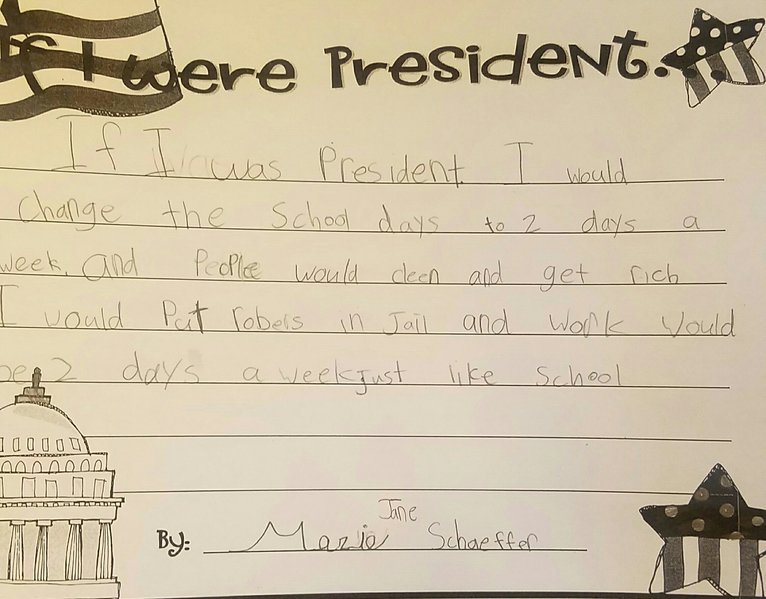 If I were President...
If I was President I would
change the School days to 2 days a
week, and People would cleen and get rich
I would Put robers in Jail and work would
be 2 days a week just like School
Jane
By: Marie Schaeffer